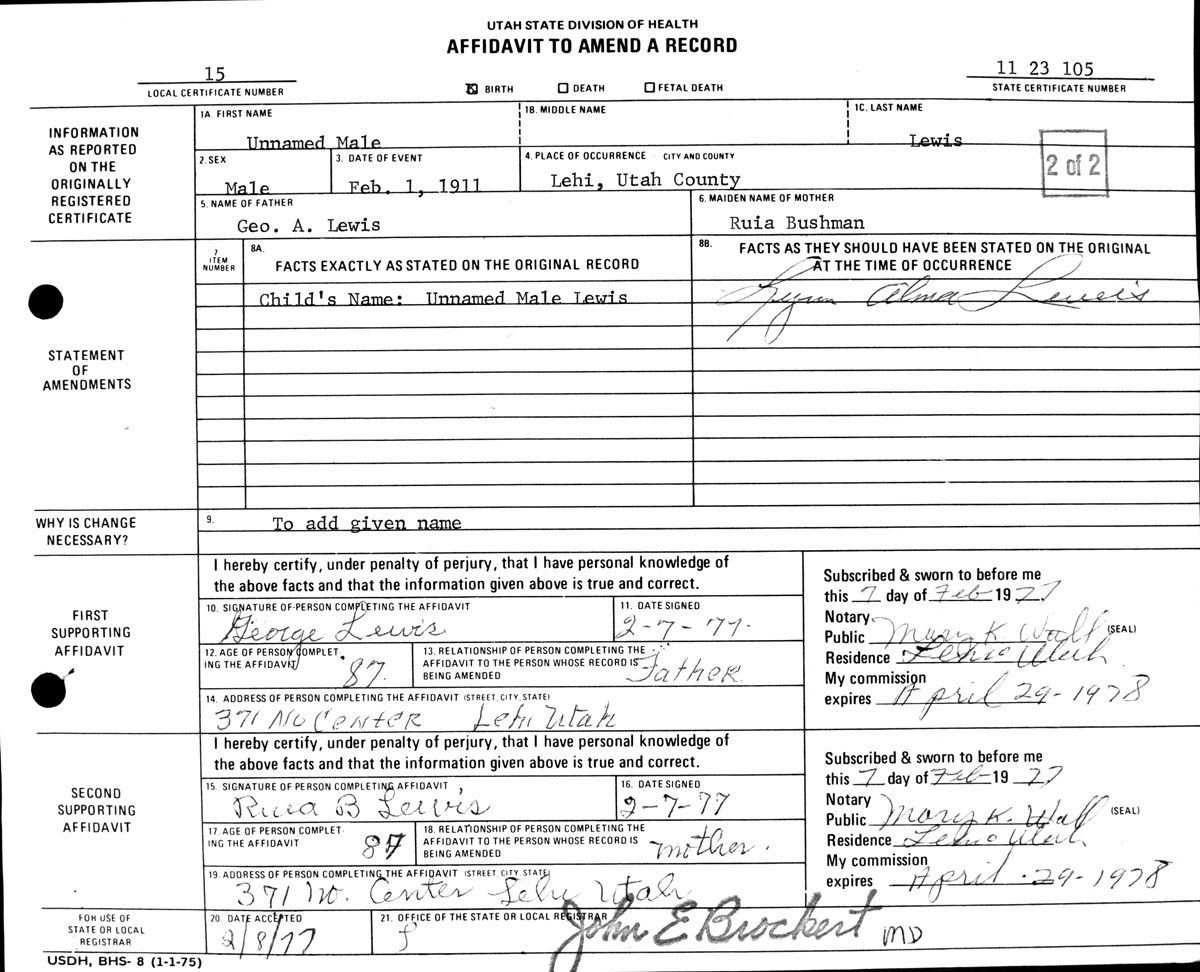 UTAH STATE DIVISION OF HEALTH
AFFIDAVIT TO AMEND A RECORD
15
LOCAL CERTIFICATE NUMBER
☒ BIRTH ☐ DEATH ☐ FETAL DEATH
11 23 105
STATE CERTIFICATE NUMBER
INFORMATION
AS REPORTED
ON THE
ORIGINALLY
REGISTERED
CERTIFICATE
1A. FIRST NAME
Unnamed Male
1B. MIDDLE NAME
1C. LAST NAME
Lewis
2. SEX
Male
3. DATE OF EVENT
Feb. 1, 1911
4. PLACE OF OCCURRENCE CITY AND COUNTY
Lehi, Utah County
2 of 2
5. NAME OF FATHER
Geo. A. Lewis
6. MAIDEN NAME OF MOTHER
Ruia Bushman
STATEMENT
OF
AMENDMENTS
7
ITEM
NUMBER
8A.
FACTS EXACTLY AS STATED ON THE ORIGINAL RECORD
8B. FACTS AS THEY SHOULD HAVE BEEN STATED ON THE ORIGINAL
AT THE TIME OF OCCURRENCE
Child's Name: Unnamed Male Lewis
Lynn Alma Lewis
WHY IS CHANGE
NECESSARY?
9.
To add given name
FIRST
SUPPORTING
AFFIDAVIT
I hereby certify, under penalty of perjury, that I have personal knowledge of
the above facts and that the information given above is true and correct.
10. SIGNATURE OF PERSON COMPLETING THE AFFIDAVIT
George Lewis
11. DATE SIGNED
2-7-77.
12. AGE OF PERSON COMPLET-
ING THE AFFIDAVIT
87.
13. RELATIONSHIP OF PERSON COMPLETING THE
AFFIDAVIT TO THE PERSON WHOSE RECORD IS
BEING AMENDED
Father
14. ADDRESS OF PERSON COMPLETING THE AFFIDAVIT (STREET, CITY, STATE)
371 No CENTER Lehi Utah
Subscribed & sworn to before me
this 7 day of Feb 19 77
Notary
Public Mary K. Wall (SEAL)
Residence Lehi Utah
My commission
expires April 29-1978
SECOND
SUPPORTING
AFFIDAVIT
I hereby certify, under penalty of perjury, that I have personal knowledge of
the above facts and that the information given above is true and correct.
15. SIGNATURE OF PERSON COMPLETING AFFIDAVIT
B Lewis
16. DATE SIGNED
2-7-77
17. AGE OF PERSON COMPLET-
ING THE AFFIDAVIT
87
18. RELATIONSHIP OF PERSON COMPLETING THE
AFFIDAVIT TO THE PERSON WHOSE RECORD IS
BEING AMENDED
mother.
19. ADDRESS OF PERSON COMPLETING THE AFFIDAVIT (STREET, CITY, STATE)
371 No. Center Lehi Utah
Subscribed & sworn to before me
this 7 day of Feb 19 77
Notary
Public Mary K. Wall (SEAL)
Residence Lehi Utah
My commission
expires April 29-1978
FOR USE OF
STATE OR LOCAL
REGISTRAR
20. DATE ACCEPTED
2/8/77
21. OFFICE OF THE STATE OR LOCAL REGISTRAR
John E Brockert MD
USDH, BHS- 8 (1-1-75)